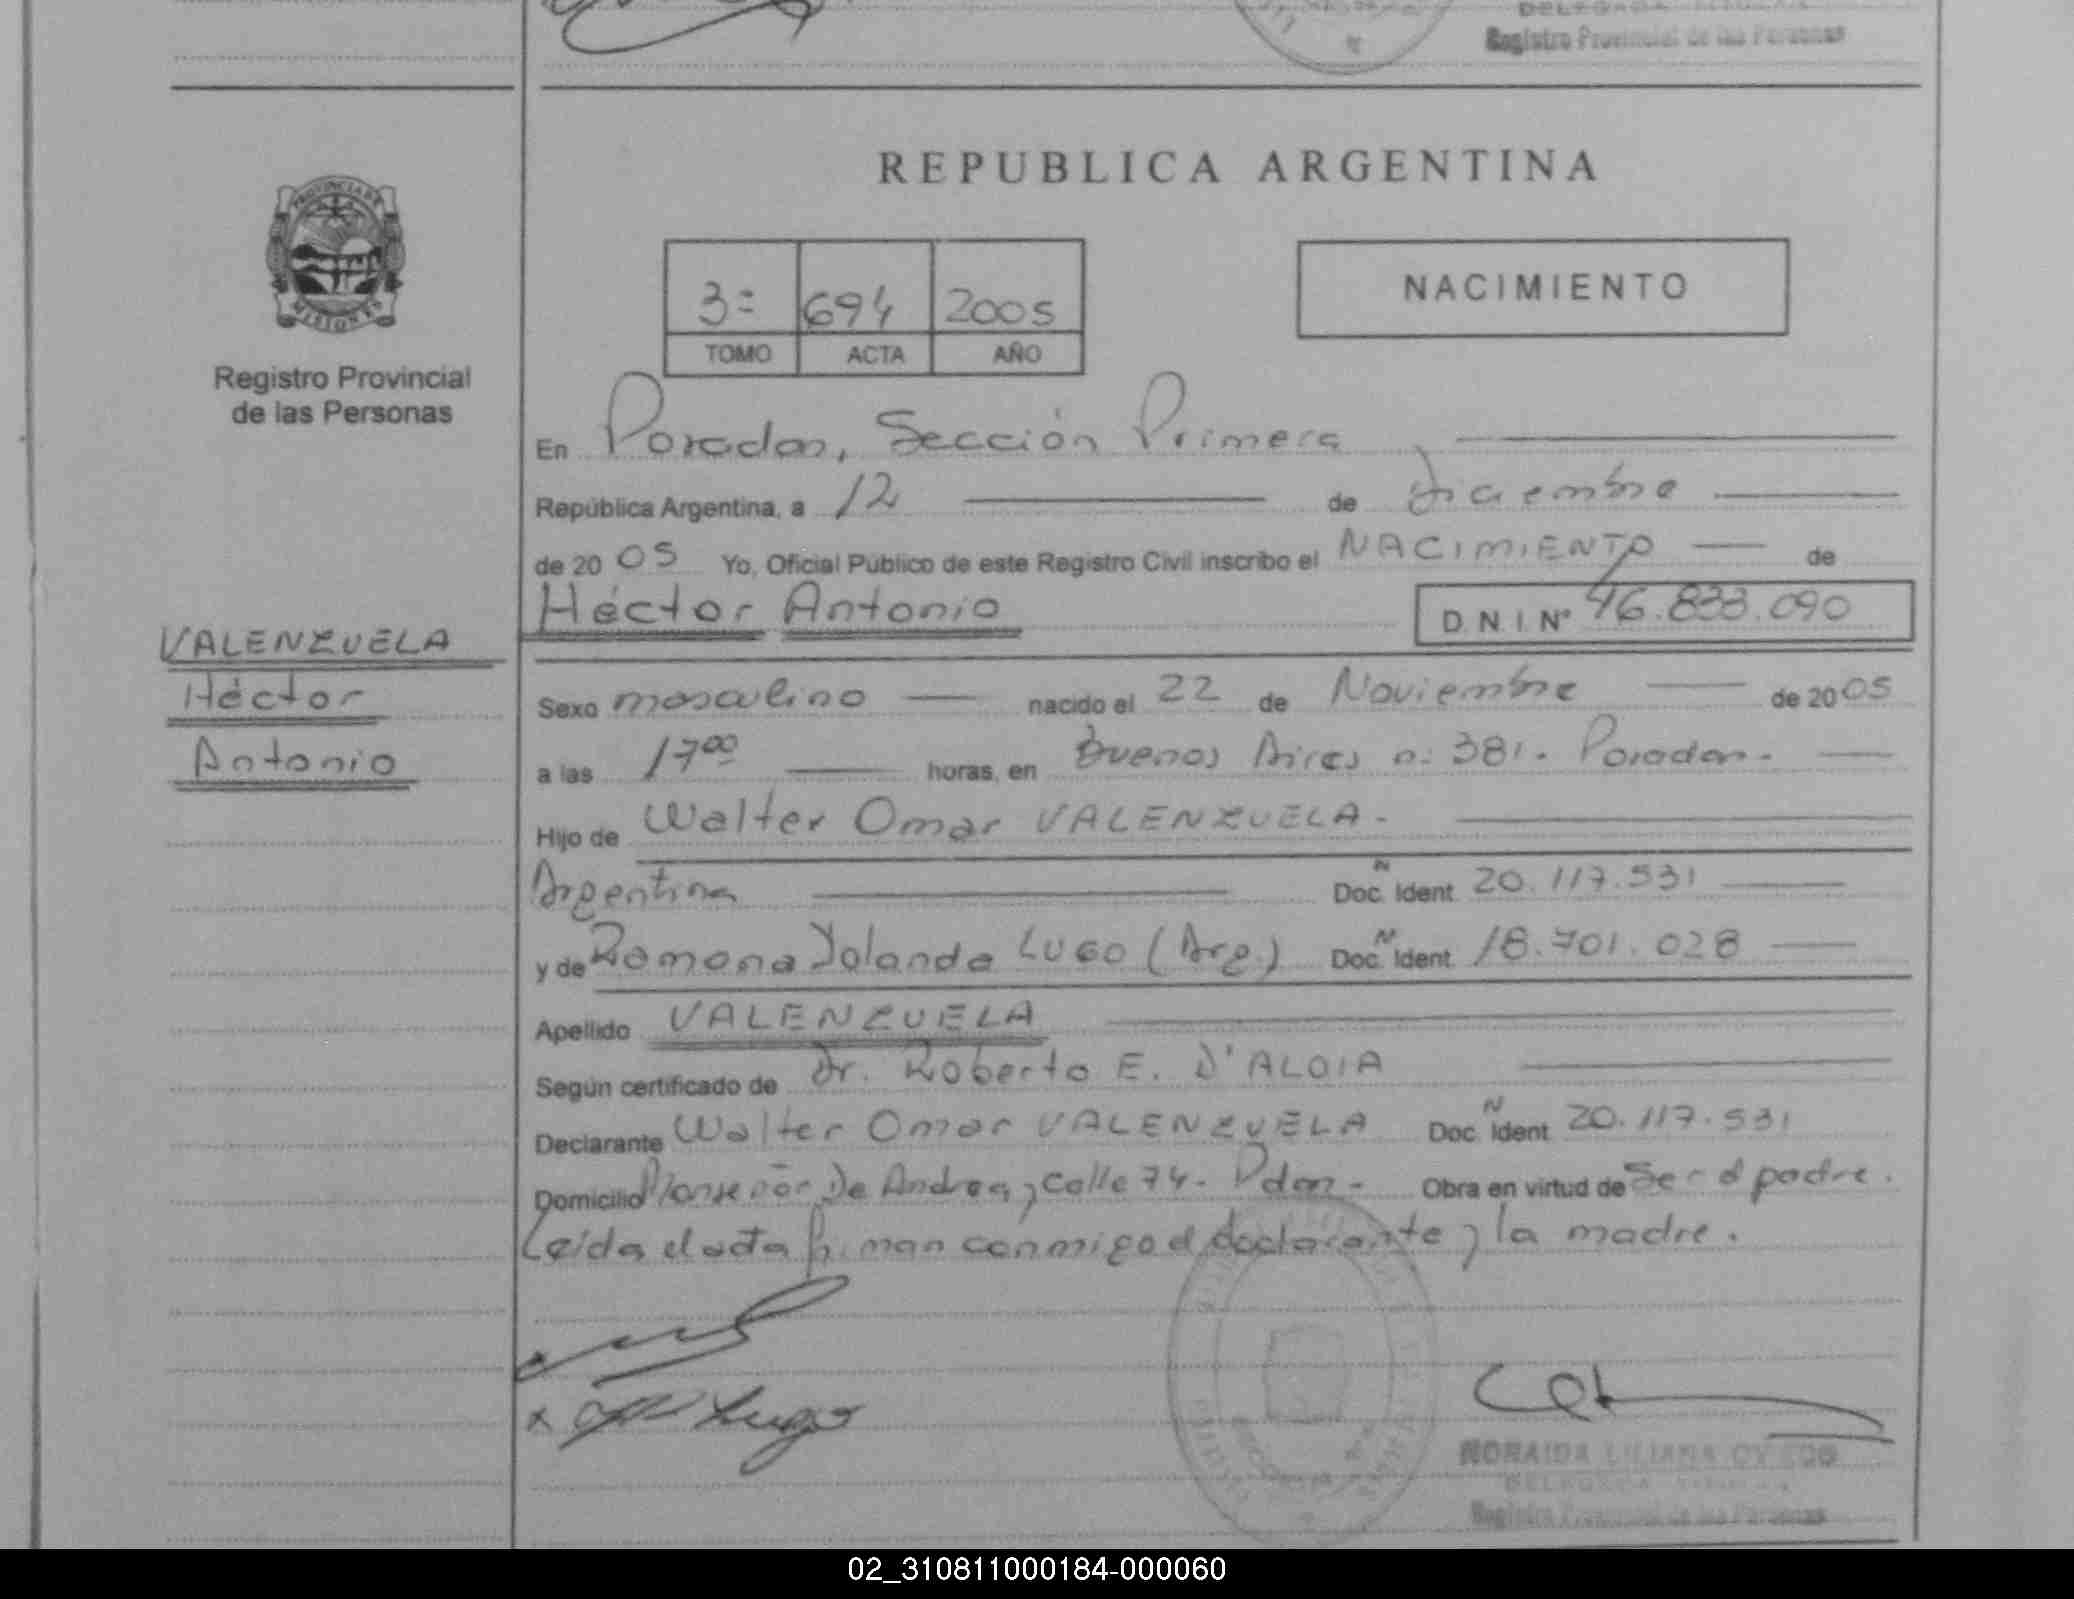 Registro Provincial de las Personas
REPUBLICA ARGENTINA
PROVINCIA DE
MISIONES
Registro Provincial
de las Personas
3= 694 2005
TOMO ACTA AÑO
NACIMIENTO
En Posadas, Sección Primera
República Argentina, a 12 de diciembre
de 2005 Yo, Oficial Público de este Registro Civil inscribo el NACIMIENTO de
Héctor Antonio D.N.I. Nº 46.833.090
VALENZUELA
Héctor
Antonio
Sexo masculino nacido el 22 de Noviembre de 2005
a las 17 00 horas, en Buenos Aires n: 381. Posadas.
Hijo de Walter Omar VALENZUELA.
Argentina Doc. N Ident. 20.117.531
y de Ramona Yolanda LUGO (Arg.) Doc. N Ident. 18.701.028
Apellido VALENZUELA
Según certificado de Dr. Roberto E. D'ALOIA
Declarante Walter Omar VALENZUELA Doc. N Ident. 20.117.531
Domicilio Monseñor De Andrea y calle 74. Pdas. Obra en virtud de Ser el padre.
Leída el acta firman conmigo el declarante y la madre.
Lugo
NORAIDA LILIANA OVIEDO
DELEGADA
Registro Provincial de las Personas
02_310811000184-000060